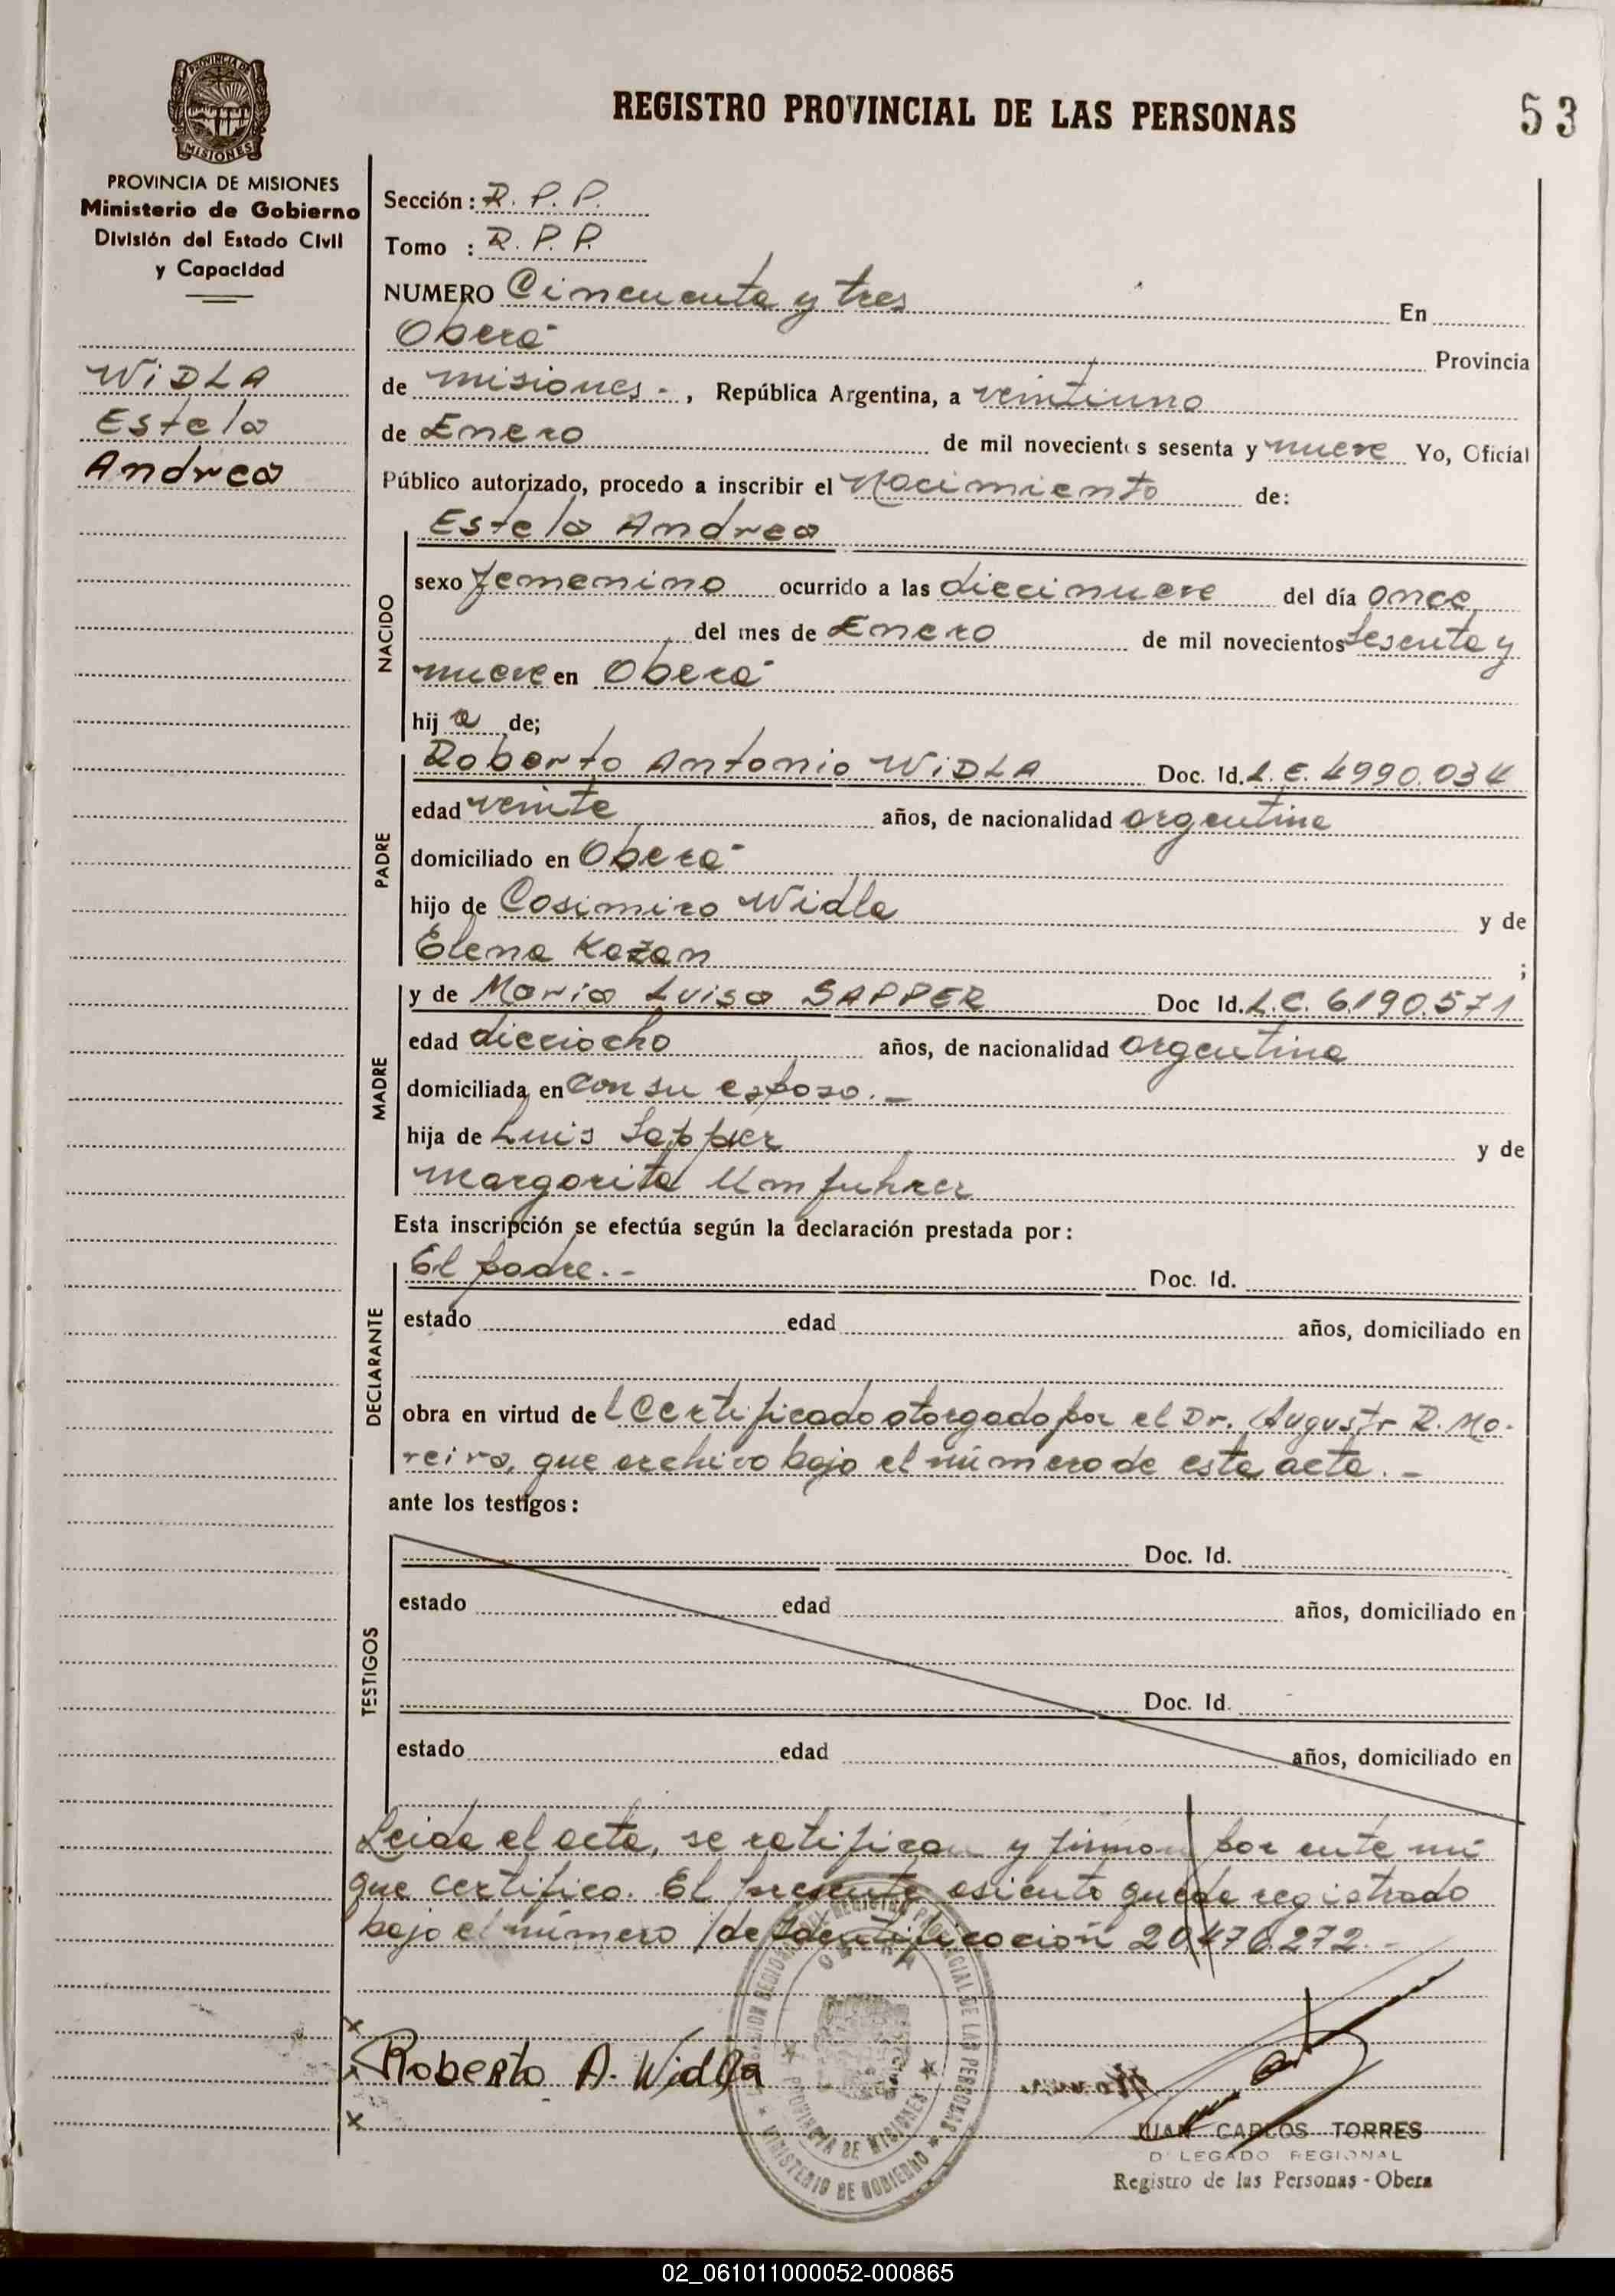 REGISTRO PROVINCIAL DE LAS PERSONAS
53
PROVINCIA DE MISIONES
PROVINCIA DE MISIONES
Ministerio de Gobierno
División del Estado Civil
y Capacidad
WiDLA
Estela
Andrea
Sección: R. P. P.
Tomo : R. P. P.
NUMERO Cincuenta y tres En
Oberá Provincia
de misiones - , República Argentina, a veintiuno
de Enero de mil novecientos sesenta y nueve Yo, Oficial
Público autorizado, procedo a inscribir el Nacimiento de:
NACIDO
Estela Andrea
sexo femenino ocurrido a las diecinueve del día once
del mes de Enero de mil novecientos sesenta y
nueve en Oberá
hij a de;
PADRE
Roberto Antonio WiDLA Doc. Id. L. E. 4990.034
edad veinte años, de nacionalidad argentina
domiciliado en Oberá
hijo de Casimiro Widla y de
Elena Kazan ;
MADRE
y de Maria Luisa SAPPER Doc Id. L.C. 6.190.571
edad dieciocho años, de nacionalidad argentina
domiciliada en con su esposo. -
hija de Luis Sapper y de
Margarita Umfuhrer
Esta inscripción se efectúa según la declaración prestada por:
DECLARANTE
El padre. - Doc. Id.
estado edad años, domiciliado en
obra en virtud del Certificado otorgado por el Dr. Augusto R. Mo-
reira, que archivo bajo el número de esta acta. -
ante los testigos:
TESTIGOS
Doc. Id.
estado edad años, domiciliado en
Doc. Id.
estado edad años, domiciliado en
Leida el acta, se ratifican y firman por ante mi
que certifico. El presente asiento queda registrado
bajo el número de Identificación 20.476.272. -
Roberto A. Widla
OBERA
DEL REGISTRO PROVINCIAL DE LAS PERSONAS
PROVINCIA DE MISIONES
MINISTERIO DE GOBIERNO
JUAN CARLOS TORRES
D LEGADO REGIONAL
Registro de las Personas - Obera
02_061011000052-000865